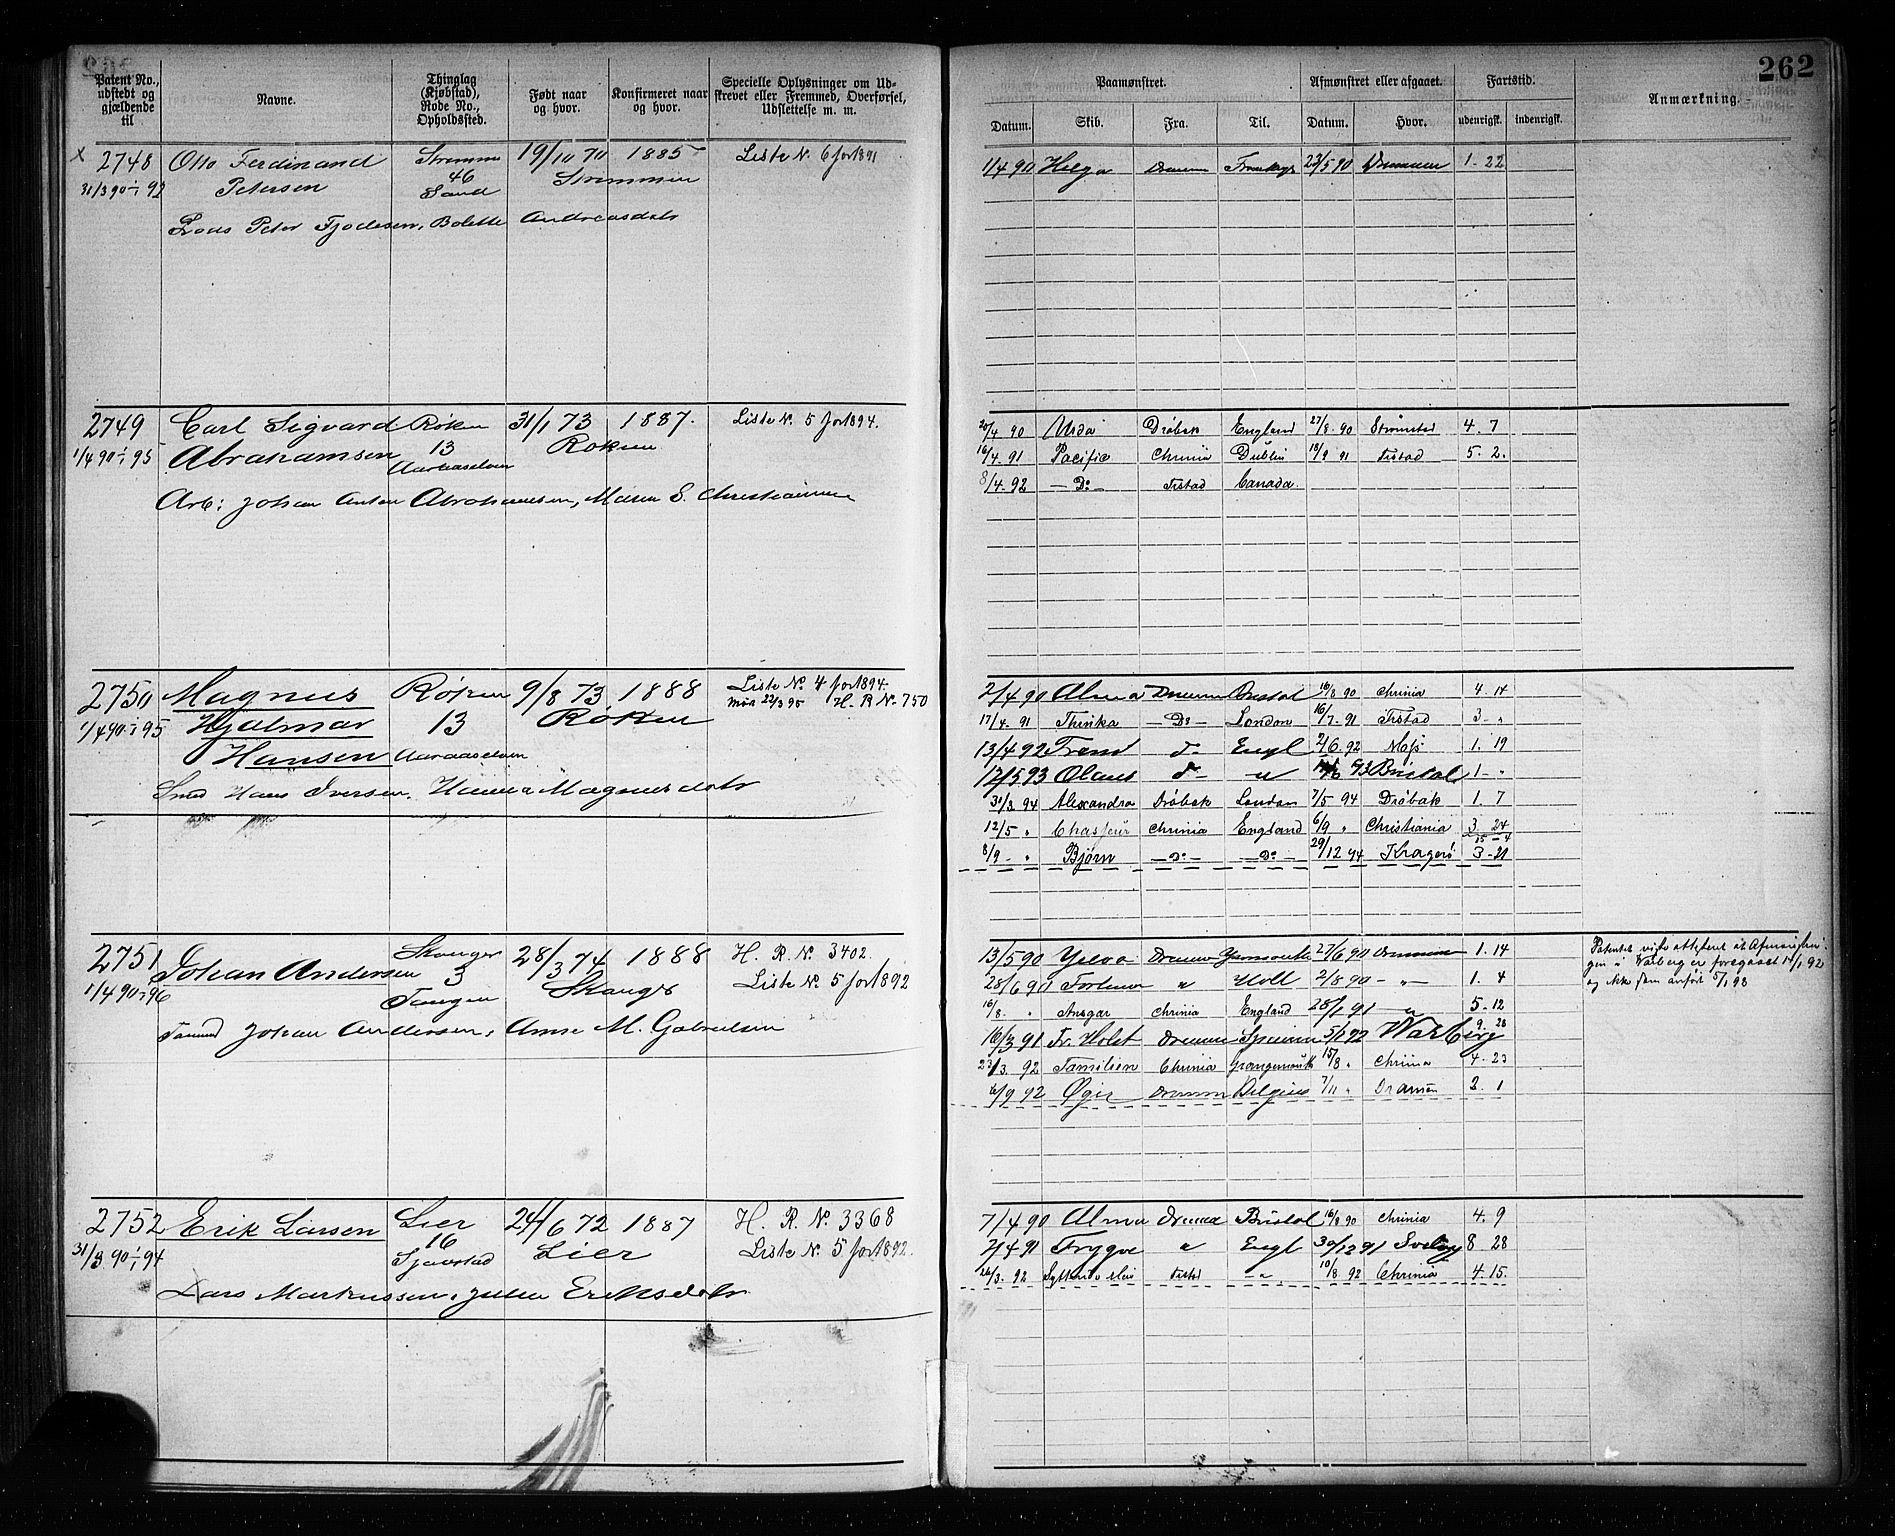 262
Patent No., udstedt og gjældende til
Navne.
Thinglag (Kjøbstad), Rode No., Opholdssted.
Født naar og hvor.
Konfirmeret naar og hvor.
Specielle Oplysninger om Udskrevet eller Fremmed, Overførsel, Udslettelse m. m.
Paamønstret.
Afmønstret eller afgaaet.
Fartstid.
Anmærkning.
Datum. Skib. Fra. Til. Datum. Hvor. udenrigsk. indenrigsk.
x 2748 Otto Ferdinand Strømmen 19/10 70 1885 Liste N. 6 for 1891
31/3 90-1/1 92 Petersen 46 Sand Strømmen
Peter Fjodesen, Bolette Andreasdatr
1/4 90 Helga Drammen 23/5 90 Drammen 1. 22
2749 Carl Sigvard Røken 31/1 73 1887. Liste N. 5 for 1894.
1/4 90-1/1 95 Abrahamsen 13 Røken
Arb: Johan Anton Abrahamsen, Maren S. Christiansen
20/4 90 Urda Drøbak England 27/8 90 Strømstad 4. 7
16/4. 91 Pacific Chrinia Dublin 19/9 91 Frstad 5. 2.
8/4. 92 — Do — Frstad Canada.
2750 Magnus Røken 9/8 73 1888 Liste No. 4 for 1894.
1/4 90-1/1 95 Hjalmar 13 Røken 22/3 95 H. R. N. 750
Hansen
Smed Hans Iversen, Hanna Magnusdatr
2/4 90 Alma Drammen Bristol 16/8 90 Chrinia 4. 14
17/4. 91 Thinka — Do — London 16/7. 91 Frstad 3. "
13/4 92 Fram do — Engl 2/6 92 Moss 1. 19
12/5 93 Olaus do — " 93 Bristol 1 - "
31/3. 94 Alexandra Drøbak London 7/5 94 Drøbak 1. 7
12/5 " Chasseur Chrinia England 6/9 " Christiania 3 24
15 - 4
8/9 - " Bjørn — Do — — Do — 29/12 94 Kragerø 3 - 21
2751 Johan Andersen Skoger 28/3 74 1888 H. R. N. 3402.
1/4 90-96 3 Tangen Skoger Liste N. 5 for 1892
Johan Andersen, Anne M. Gabrielsen
13/5 90 Ylva Drammen Yarmouth 27/6 90 Drammen 1. 14
28/6 90 Fortuna " Holl 2/8 90 — " — 1. 4
16/8. " Ansgar Chrinia England 28/1 91 " 5. 12
16/3 91 Fr. Holst Drammen Spanien 5/1 92 Warberg 9. 28
23/3. 92 Familien Chrinia Grangemouth 15/8 " Chrinia 4. 23
6/9 92 Øgir Drammen Belgien 7/11 " Drammen 2. 1
2752 Erik Larsen Lier 24/6 72 1887 H. R. N. 3368
31/3 90-1/1 94 16 Lier Liste N. 5 for 1892.
Lars Markussen, Julia Eriksdatr
7/4 90 Alma Drammen Bristol 16/8 90 Chrinia 4. 9
2/4 91 Trygve " Engl 30/12 91 Svelvig 8 28
92 Frstad — " — 10/8 92 Chrinia 4. 15.